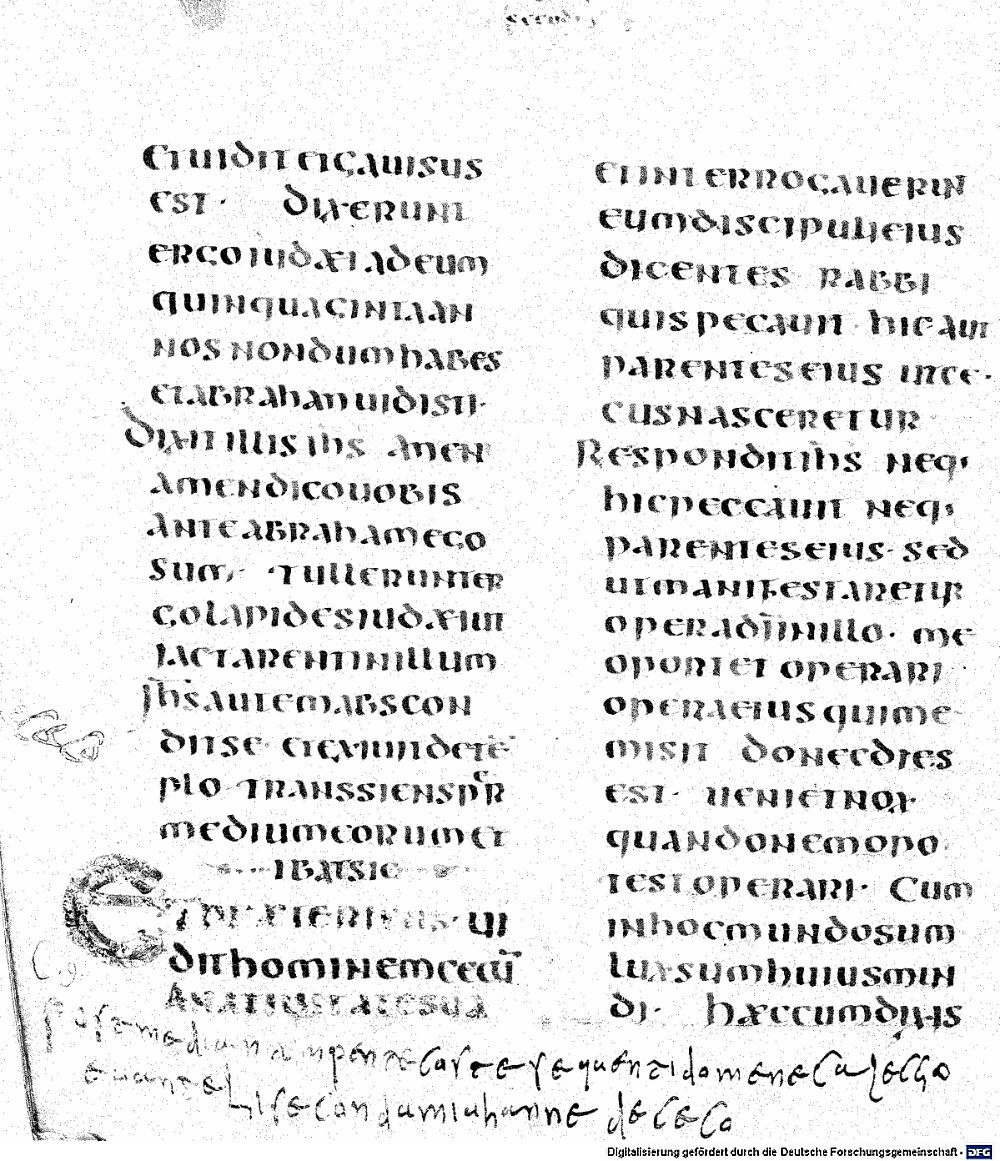 ET UIDIT ET GAUISUS
EST · DIXERUNT
ERGO IUDÆI AD EUM
QUINQUAGINTA AN
NOS NONDUM HABES
ET ABRAHAN UIDISTI ·
DIXIT ILLIS IH̅S AMEN
AMEN DICO UOBIS
ANTE ABRAHAM EGO
SUM · TULLERUNT ER
GO LAPIDES IUDÆI UT
IACTARENT IN ILLUM
IH̅S AUTEM ABSCON
DIT SE ET EXIUIT DE TE̅
PLO TRANSSIENS PER
MEDIUM EORUM ET
IBAT SIC
ET PRÆTERIENS · UI
DIT HOMINEM CECU̅
A NATIUITATE SUA
ET INTERROGAUERUN̅
EUM DISCIPULI EIUS
DICENTES RABBI
QUIS PECAUIT HIC AUT
PARENTES EIUS UT CE ·
CUS NASCERETUR
RESPONDIT IH̅S NEQ·
HIC PECCAUIT NEQ·
PARENTES EIUS · SED
UT MANIFESTARETUR
OPERA DI̅ IN ILLO · ME
OPORTET OPERARI
OPERA EIUS QUI ME
MISIT DONEC DIES
EST · UENIET NOX
QUANDO NEMO PO
TEST OPERARI · CUM
IN HOC MUNDO SUM
LUX SUM HUIUS MUN
DI · HÆC CUM DIXIS
mediana
sequenti domeneca
euangeLi secundum iuhanne de ceco
Digitalisierung gefördert durch die Deutsche Forschungsgemeinschaft - DFG